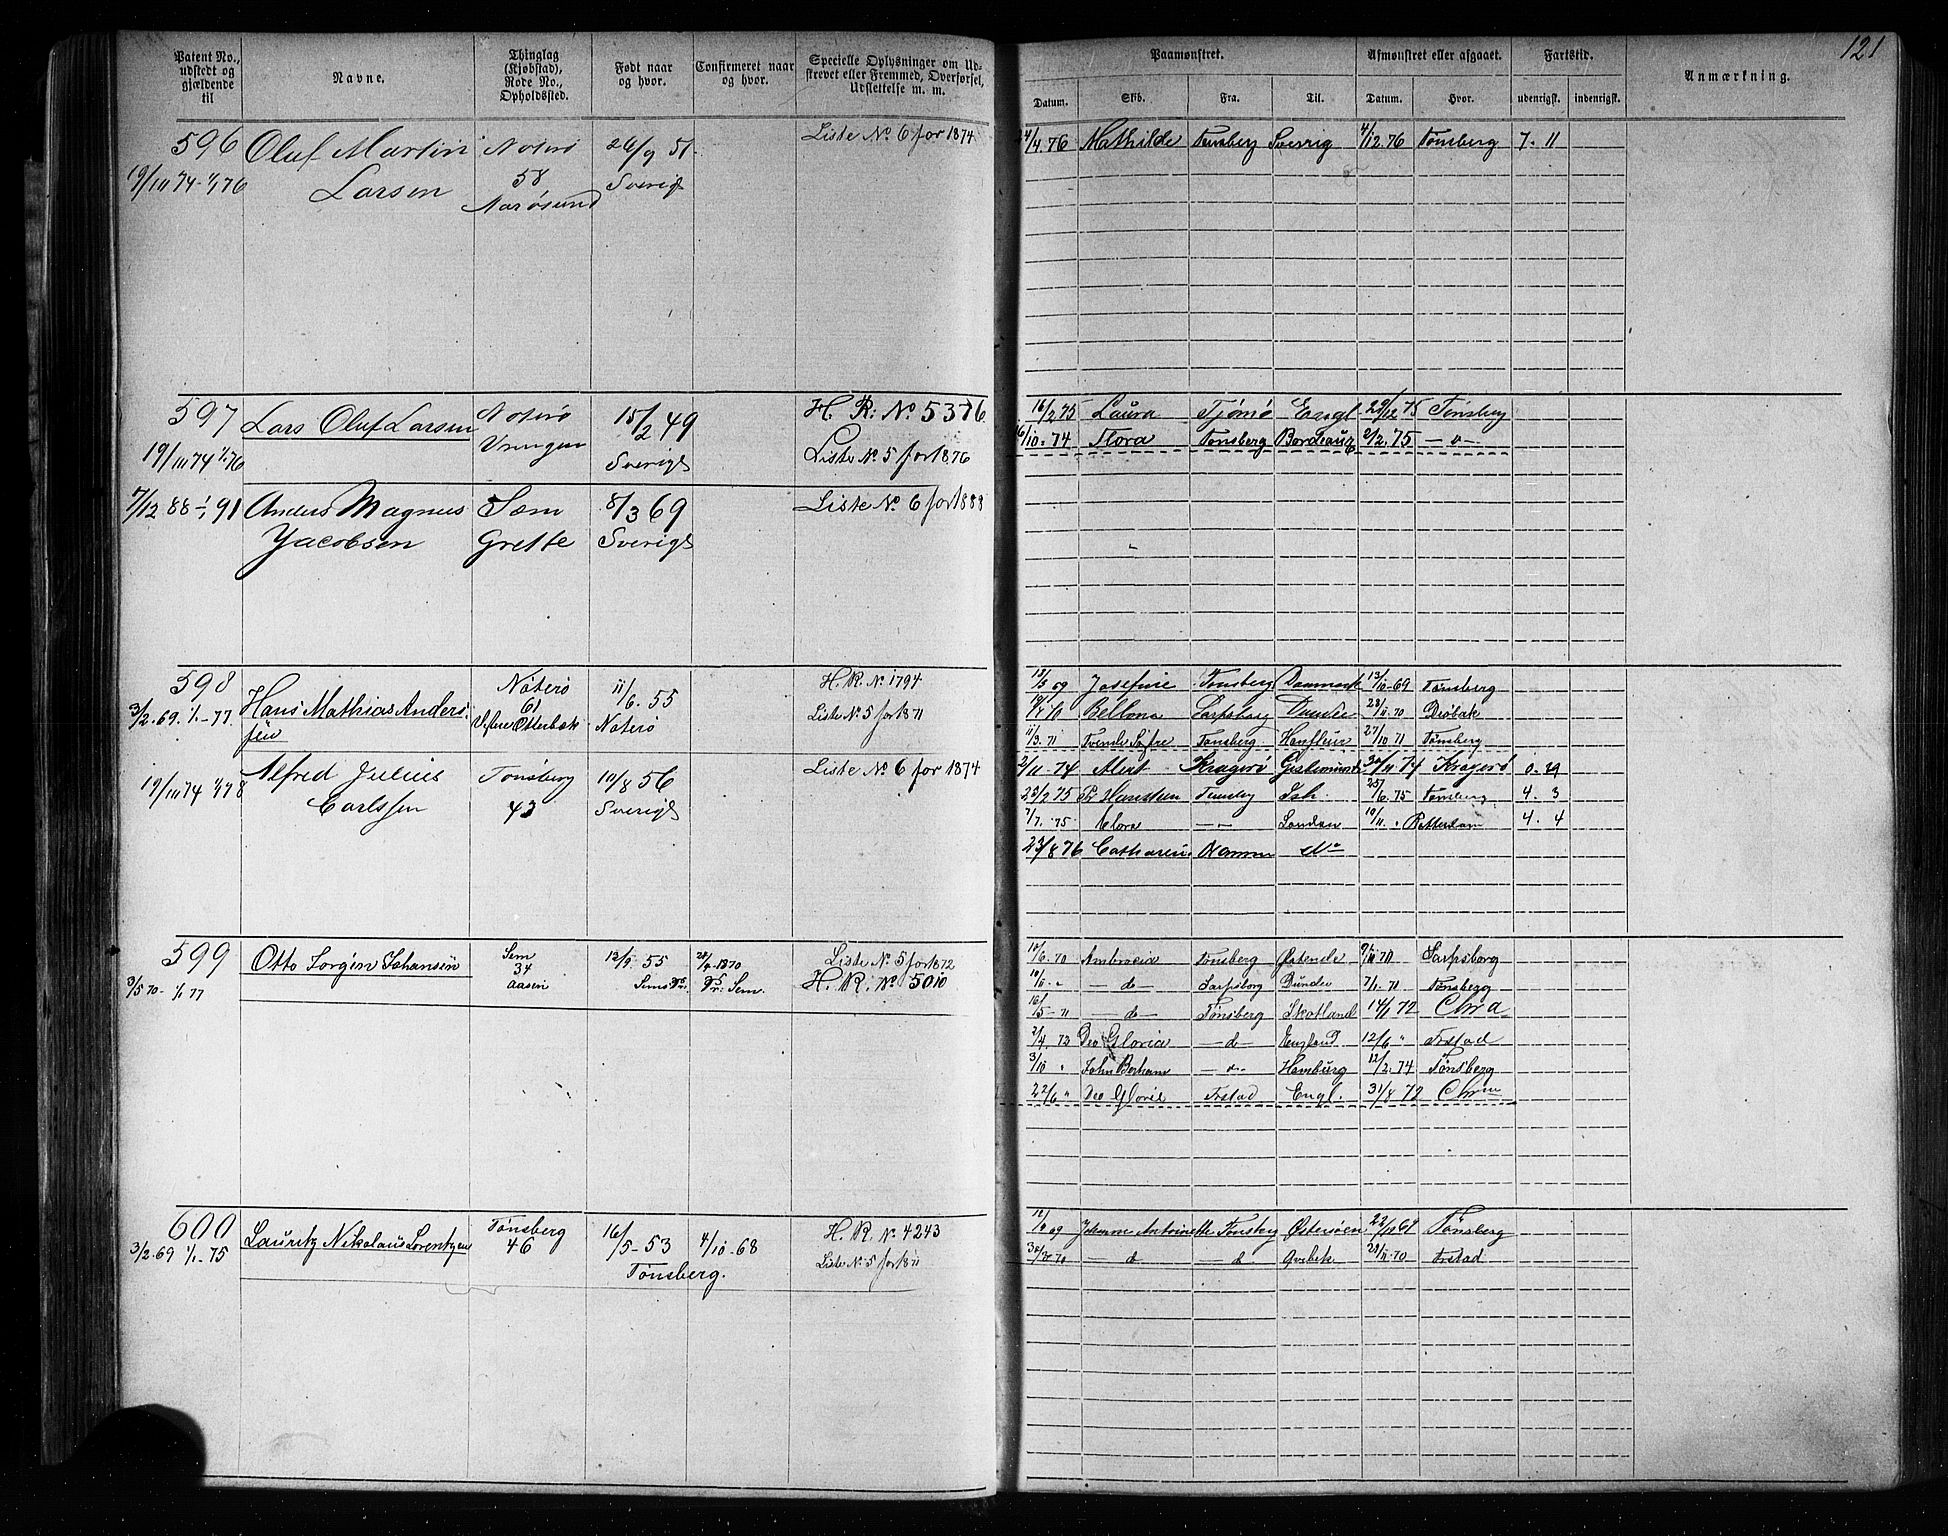 121
Patent No., udstedt og gjældende til
Navne.
Thinglag (Kjøbstad), Rode No., Opholdssted.
Født naar og hvor.
Confirmeret naar og hvor.
Specielle Oplysninger om Udskrevet eller Fremmed, Overførsel, Udslettelse m. m.
Paamønstret.
Afmønstret eller afgaaet.
Fartstid.
Anmærkning.
Datum. Skib. Fra. Til. Datum. Hvor. udenrigsk. indenrigsk.
596 Oluf Martin Nøterö 26/9 51. Liste No 6 for 1874 24/4. 76 Mathilde Tønsberg Sverrig 4/12. 76 Tønsberg 7. 11
19/10 74 - 1/1 76 Larsen 58 Sverige
Narösund
597 Lars Oluf Larsen Nøterö 15/2 49 H. R: No 5376 16/2 75 Laura Tjømø Engl 29/12 75 Tønsberg
Vrengen 16/10. 74 Flora Tønsberg Bordeaux 2/2. 75 — o —
19/10 74 1/1 76 Sverige Liste No 5 for 1876
7/12 88 - 1/1 91 Anders Magnus Sæm 8/3 69 Liste No 6 for 1888
Jacobsen Grette Sverige
598 Hans Mathias Andersen Nøterö 11/6. 55 H. R. No 1794 Josefine Tønsberg Danmark 13/10-69 Tønsberg
3/2. 69. 1/1 - 77 61 Nøterö Liste No 5 for 1871 Bellona Sarpsborg Dundee 28/11. 70 Drøbak
11/3. 71 Tvende Søstre Tønsberg Honfleur 27/10 71 Tønsberg
19/10 74 1/1 78 Alfred Julius Tønsberg 10/8 56 Liste No 6 for 1874 2/11. 74 Alert Kragerö Gestemunde 30/11 74 Kragerö 0. 29
Carlssen 43 Sverige 23/2 75 Hansteen Tønsberg 25/6. 75 Tønsberg 4. 3
7/7. 75 Flora — — London 10/11. " Rotterdam 4. 4
23/8 76
599 Otto Jørgin Johansen Sem 12/5. 55 1870 Liste No 5 for 1872 10/6. 70 Ambrosia Tønsberg Ostende Sarpsborg
3/5 70 - 1/1 77 34 Sems Pr. Pr: Sem. H. R. No 5010 — d — Sarpsborg Dundee 7/1. 71 Tønsberg
Aasen 16/5 - 71 — d — Tønsberg Skotland 14/1 72 Chra
2/4. 72 Deo Gloria — d — England 12/6 " Frstad
3/10 " John Borham — o — Hamburg 12/2. 74 Tønsberg
22/6 " Deo Gloria Frstad Engl. 31/8 72
600 Lauritz Nikolaus Lorentzen Tønsberg 16/5 - 53 4/10 - 68 H. R. No 4243 Johanne Antoinette Tønsberg Østersöen Tønsberg
3/2. 69 1/1 - 75 46 Tønsberg. Liste No 5 for 1871 — d — d 28/11. 70 Frstad